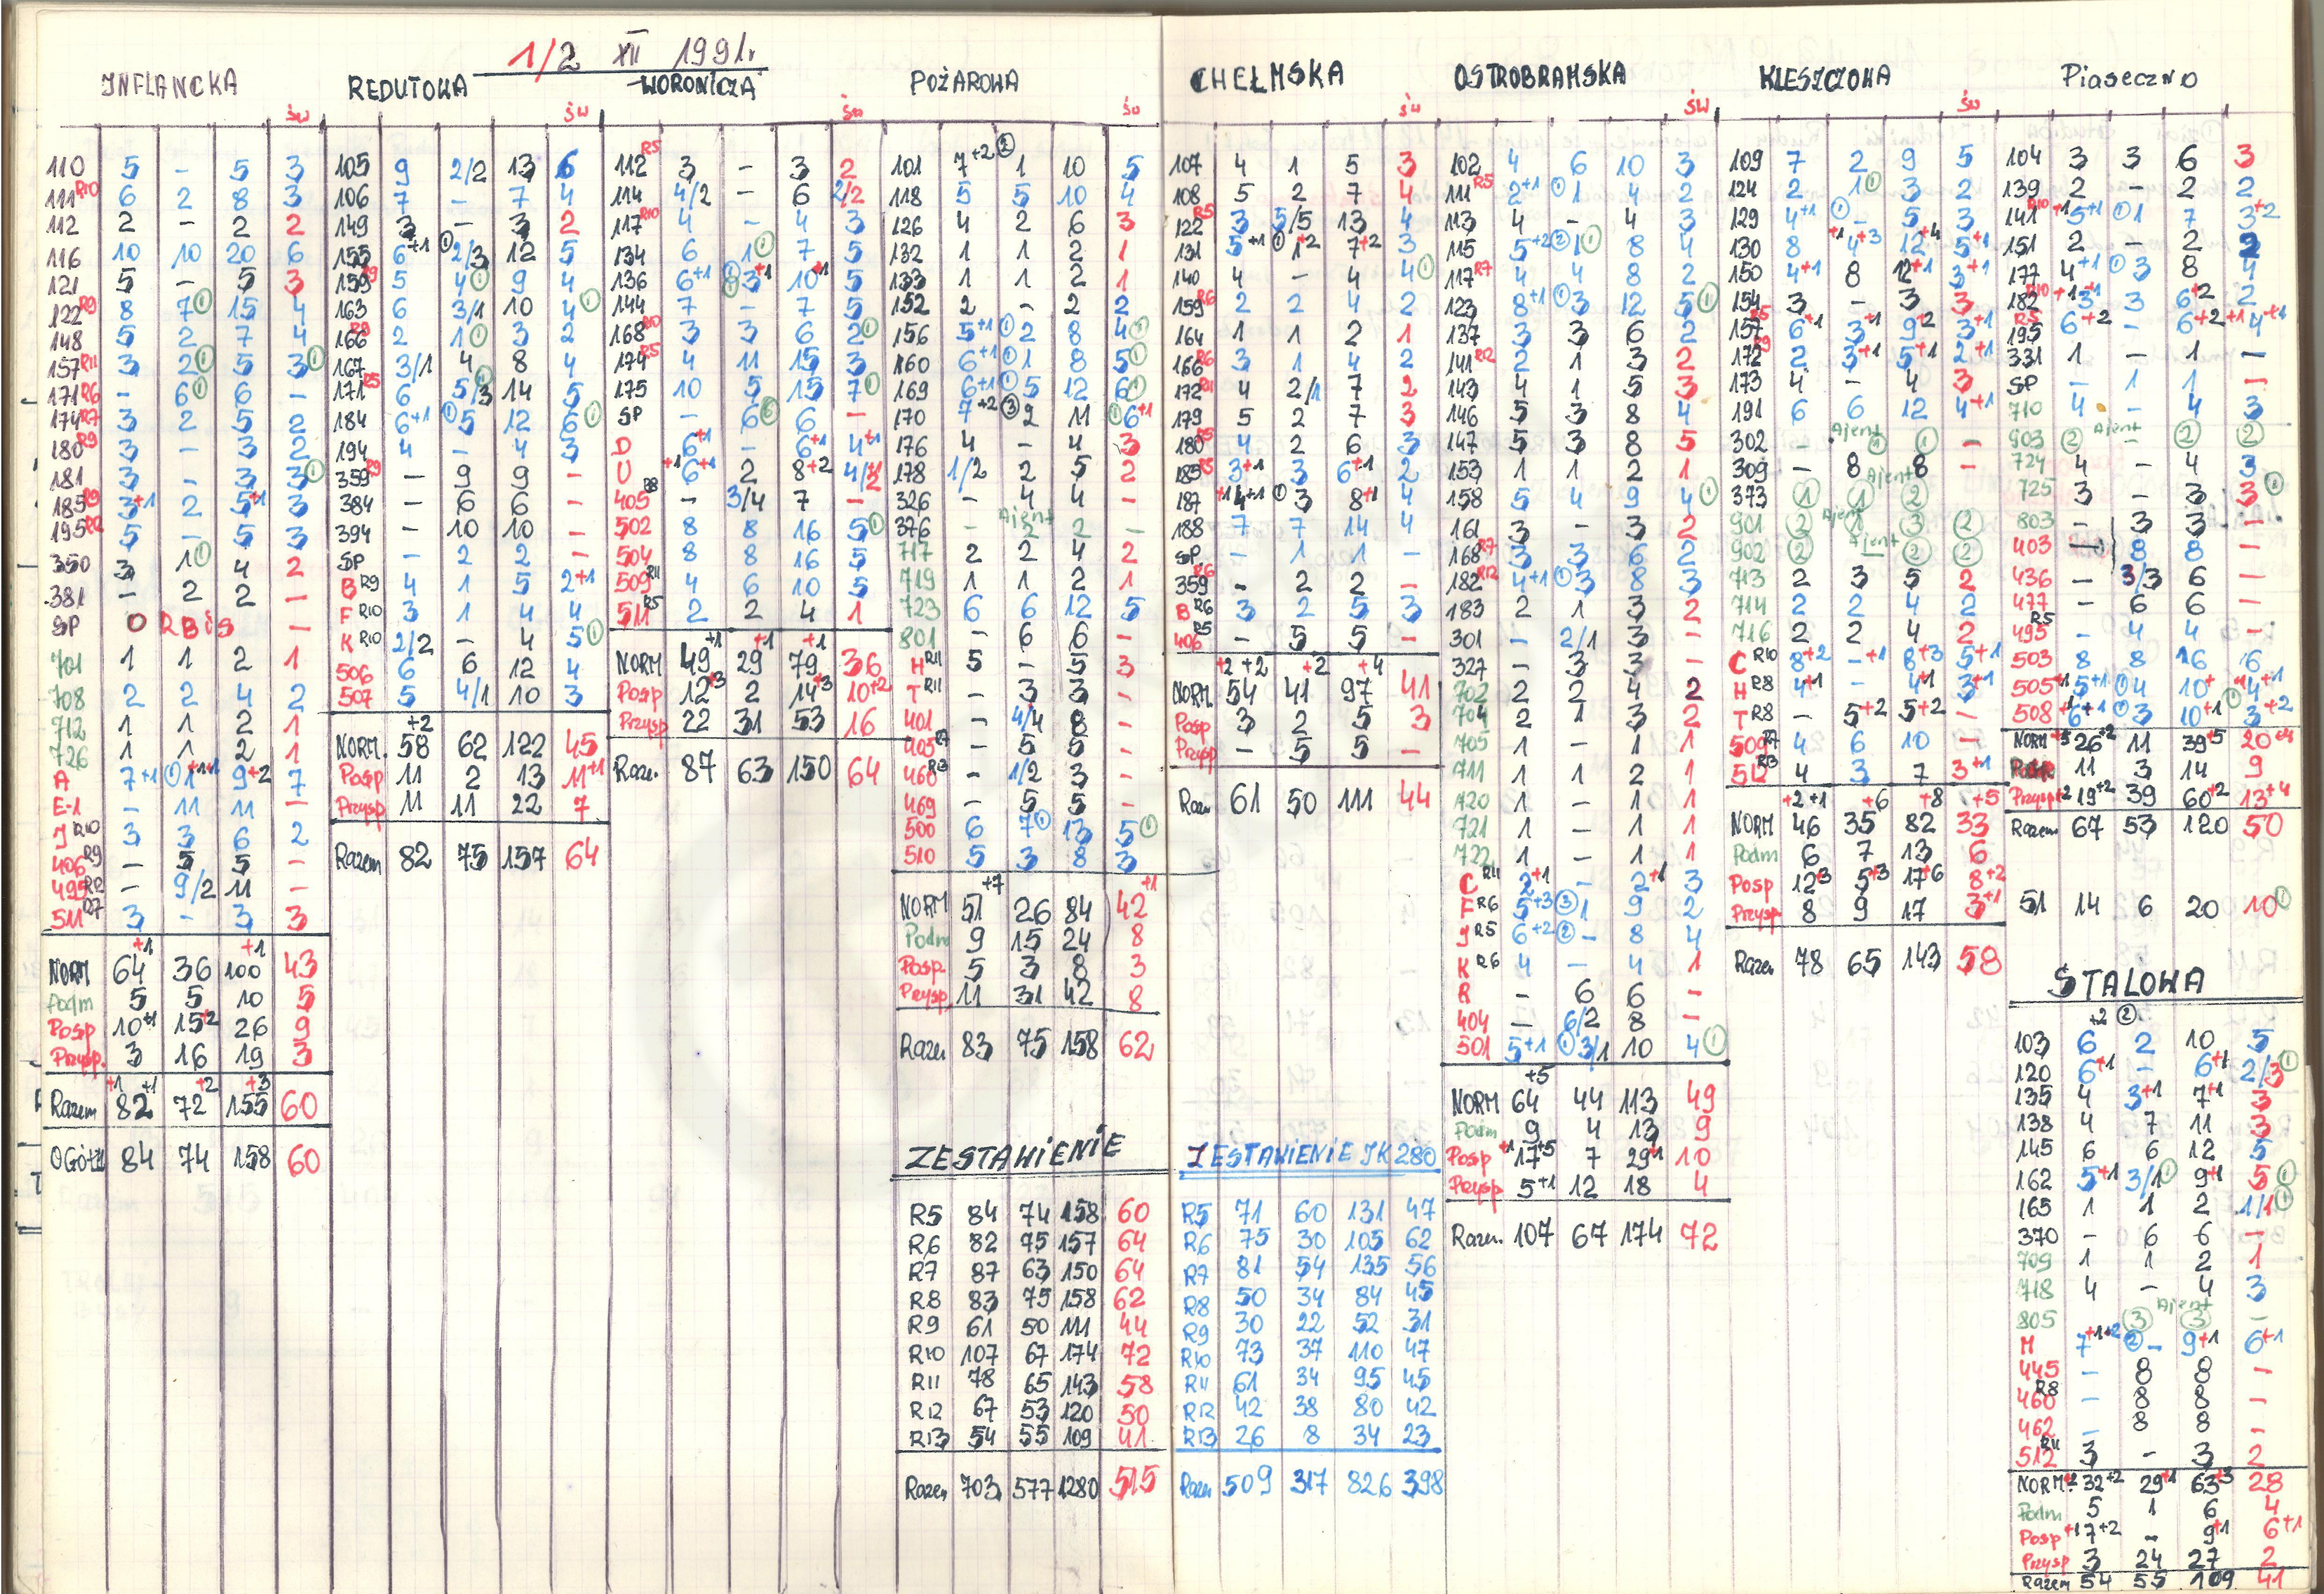 1/2 XII 1991r.
INFLANCKA
św
110 5 - 5 3
111 R10 6 2 8 3
112 2 - 2 2
116 10 10 20 6
121 5 - 5 3
122 R9 8 7① 15 4
148 5 2 7 4
157 R11 3 2① 5 3①
171 R6 - 6① 6 -
174 R7 3 2 5 2
180 R9 3 - 3 2
181 3 - 3 3①
185 R9 3+1 2 5+1 3
195 R12 5 - 5 3
350 3 1① 4 2
381 - 2 2 -
SP ORBiS -
701 1 1 2 1
708 2 2 4 2
712 1 1 2 1
726 1 1 2 1
A 7+1 ①1+1+1 9+2 7
E-1 - 11 11 -
J R10 3 3 6 2
406 R9 - 5 5 -
495 R12 - 9/2 11 -
511 R7 3 - 3 3
NORM 64+1 36 100+1 43
Podm 5 5 10 5
Posp 10+1 15+2 26 9
Przysp. 3 16 19 3
Razem +1 82+1 72+2 155+3 60
OGółEM 84 74 158 60
REDUTOWA
św
105 9 2/2 13 6
106 7 - 7 4
149 3 - 3 2
155 6+1 ①2/3 12 5
159 R9 5 4① 9 4
163 6 3/1 10 4①
166 R8 2 1① 3 2
167 3/1 4 8 4
171 R5 6 5/3① 14 5
184 6+1 ①5 12 6①
194 4 - 4 3
359 R9 - 9 9 -
384 - 6 6 -
394 - 10 10 -
SP - 2 2 -
B R9 4 1 5 2+1
F R10 3 1 4 4
K R10 2/2 - 4 5①
506 6 6 12 4
507 5 4/1 10 3
NORM. 58+2 62 122 45
Posp 11 2 13 11+1
Przysp 11 11 22 7
Razem 82 75 157 64
WORONICZA
św
112 R5 3 - 3 2
114 4/2 - 6 2/2
117 R10 4 - 4 3
134 6 1① 7 5
136 6+1 ①3+1 10+1 5
144 7 - 7 5
168 R10 3 3 6 2①
174 R5 4 11 15 3
175 10 5 15 7①
SP - 6⑥ 6 -
D 6+1 - 6+1 4+1
U +1 6+1 2 8+2 4/2
405 R8 - 3/4 7 -
502 8 8 16 5①
504 8 8 16 5
509 R11 4 6 10 5
511 R5 2 2 4 1
NORM 49+1 29+1 79+1 36
Posp 12+3 2 14+3 10+2
Przysp 22 31 53 16
Razem. 87 63 150 64
POŻAROWA
św
101 7+2 ②1 10 5
118 5 5 10 4
126 4 2 6 3
132 1 1 2 1
133 1 1 2 1
152 2 - 2 2
156 5+1 ①2 8 4①
160 6+1 ①1 8 5①
169 6+1 ①5 12 6①
170 7+2 ③2 11 ①6+1
176 4 - 4 3
178 1/2 2 5 2
326 - 4 4 -
376 - Ajent 2 2 -
717 2 2 4 2
719 1 1 2 1
723 6 6 12 5
801 - 6 6 -
H R11 5 - 5 3
T R11 - 3 3 -
401 - 4/4 8 -
405 R7 - 5 5 -
460 R13 - 1/2 3 -
469 - 5 5 -
500 6 7① 13 5①
510 5 3 8 3
NORM 51+7 26 84 42+1
Podm 9 15 24 8
Posp. 5 3 8 3
Przysp. 11 31 42 8
Razem 83 75 158 62
ZESTAWIENIE
R5 84 74 158 60
R6 82 75 157 64
R7 87 63 150 64
R8 83 75 158 62
R9 61 50 111 44
R10 107 67 174 72
R11 78 65 143 58
R12 67 53 120 50
R13 54 55 109 41
Razem 703 577 1280 515
CHEŁMSKA
św
107 4 1 5 3
108 5 2 7 4
122 R5 3 5/5 13 4
131 5+1 ①1+2 7+2 3
140 4 - 4 4①
159 R6 2 2 4 2
164 1 1 2 1
166 R6 3 1 4 2
172 R11 4 2/1 7 2
179 5 2 7 3
180 R5 4 2 6 3
185 R5 3+1 3 6+1 2
187 +1 4+1 ①3 8+1 4
188 7 7 14 4
SP - 1 1 -
359 R6 - 2 2 -
B R6 3 2 5 3
406 R5 - 5 5 -
NORM +2 54+2 41+2 97+4 41
Posp 3 2 5 3
Przysp - 5 5 -
Razem 61 50 111 44
ZESTAWIENIE JK 280
R5 71 60 131 47
R6 75 30 105 62
R7 81 54 135 56
R8 50 34 84 45
R9 30 22 52 31
R10 73 37 110 47
R11 61 34 95 45
R12 42 38 80 42
R13 26 8 34 23
Razem 509 317 826 398
OSTROBRAMSKA
św
102 4 6 10 3
111 R5 2+1 ①1 4 2
113 4 - 4 3
115 5+2 ②1① 8 4
117 R7 4 4 8 2
123 8+1 ①3 12 5①
137 3 3 6 2
141 R12 2 1 3 2
143 4 1 5 3
146 5 3 8 4
147 5 3 8 5
153 1 1 2 1
158 5 4 9 4①
161 3 - 3 2
168 R7 3 3 6 2
182 R12 4+1 ①3 8 3
183 2 1 3 2
301 - 2/1 3 -
327 - 3 3 -
702 2 2 4 2
704 2 1 3 2
705 1 - 1 1
711 1 1 2 1
720 1 - 1 1
721 1 - 1 1
722 1 - 1 1
C R11 2+1 - 2+1 3
F R6 5+3 ③1 9 2
J R5 6+2 ②- 8 4
K R6 4 - 4 1
R - 6 6 -
404 - 6/2 8 -
501 5+1 ①3/1 10 4①
NORM 64+5 44 113 49
Podm 9 4 13 9
Posp +1 17+5 7 29+1 10
Przysp 5+1 12 18 4
Razem. 107 67 174 72
KLESZCZOWA
św
109 7 2 9 5
124 2 1① 3 2
129 4+1 ①- 5 3
130 8 +1 4+3 12+4 5+1
150 4+1 8 12+1 3+1
154 3 - 3 3
157 R5 6+1 3+1 9+2 3+1
172 R9 2 3+1 5+1 2+1
173 4 - 4 3
191 6 6 12 4+1
302 - Ajent ① ① -
309 - 8 8 -
373 ① Ajent ① ② -
901 ② Ajent ① ③ ②
902 ② Ajent - ② ②
713 2 3 5 2
714 2 2 4 2
716 2 2 4 2
C R10 8+2 -+1 8+3 5+1
H R8 4+1 - 4+1 3+1
T R8 - 5+2 5+2 -
509 R7 4 6 10 -
512 R13 4 3 7 3+1
NORM +2 46+1 35+6 82+8 33+5
Podm 6 7 13 6
Posp 12+3 5+3 17+6 8+2
Przysp 8 9 17 3+1
Razem 78 65 143 58
Piaseczno
104 3 3 6 3
139 2 - 2 2
141 R10 +1 5+1 ①1 7 3+2
151 2 - 2 2
177 4+1 ①3 8 4
182 R10 +1 3+1 3 6+2 2
195 R5 6+2 - 6+2+1 4+1
331 1 - 1 -
SP - 1 1 -
710 4 - 4 3
903 ② Ajent - ② ②
724 4 - 4 3
725 3 - 3 3①
803 - 3 3 -
403 8 8 -
436 - 3/3 6 -
477 - 6 6 -
495 R5 - 4 4 -
503 8 8 16 6
505 +1 5+1 ①4 10+1 4+1
508 +1 6+1 ①3 10+1 ①3+2
NORM +5 26+2 11 39+5 20+4
Posp 11 3 14 9
Przysp +2 19+2 39 60+2 13+4
Razem 67 53 120 50
51 14 6 20 10①
STALOWA
103 6+2 ②2 10 5
120 6+1 - 6+1 2/3①
135 4 3+1 7+1 3
138 4 7 11 3
145 6 6 12 5
162 5+1 3/1① 9+1 5①
165 1 1 2 1/1①
370 - 6 6 -
709 1 1 2 1
718 4 - 4 3
805 ③ Ajent ③ -
M 7+1+2 ②- 9+1 6+1
445 - 8 8 -
460 R8 - 8 8 -
462 - 8 8 -
512 R11 3 - 3 2
NORM +2 32+2 29+1 63+3 28
Podm 5 1 6 4
Posp +1 7+2 - 9+1 6+1
Przysp 3 24 27 2
Razem 54 55 109 41